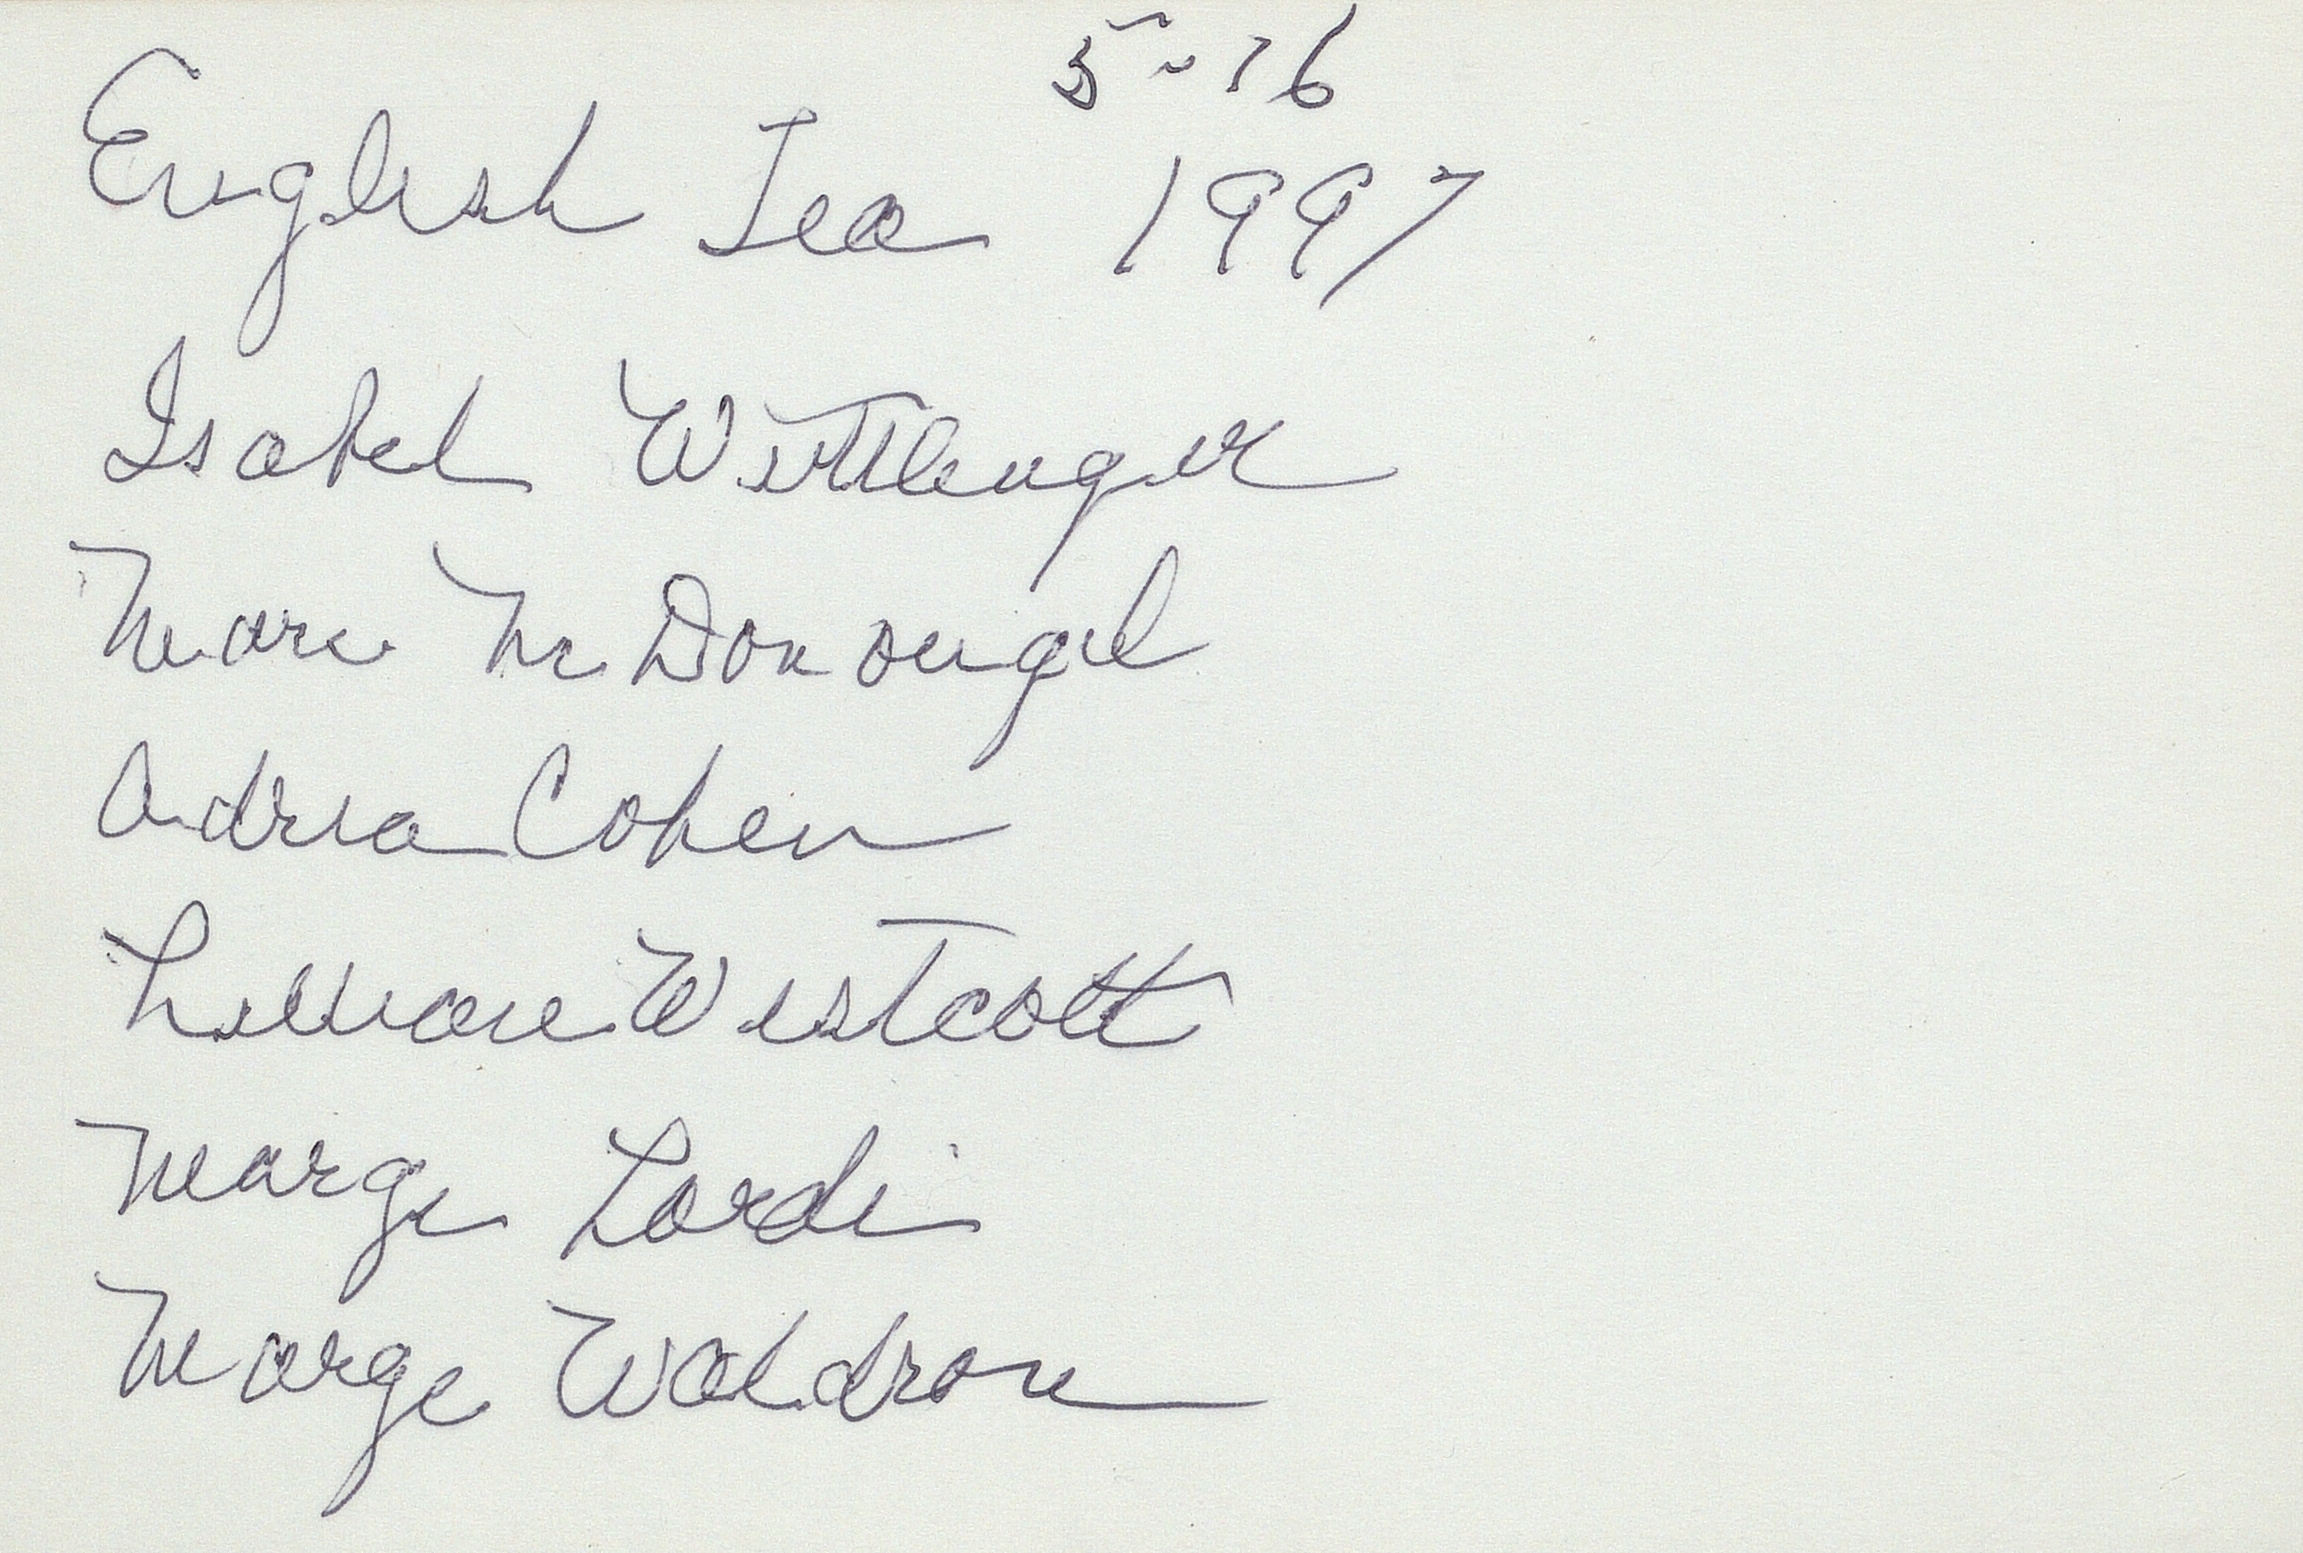 5-16
English Tea 1997
Isabel Wittlenger
Marc McDonougal
Andria Cohen
Lillian Westcott
Marge Lordi
Marge Waldron